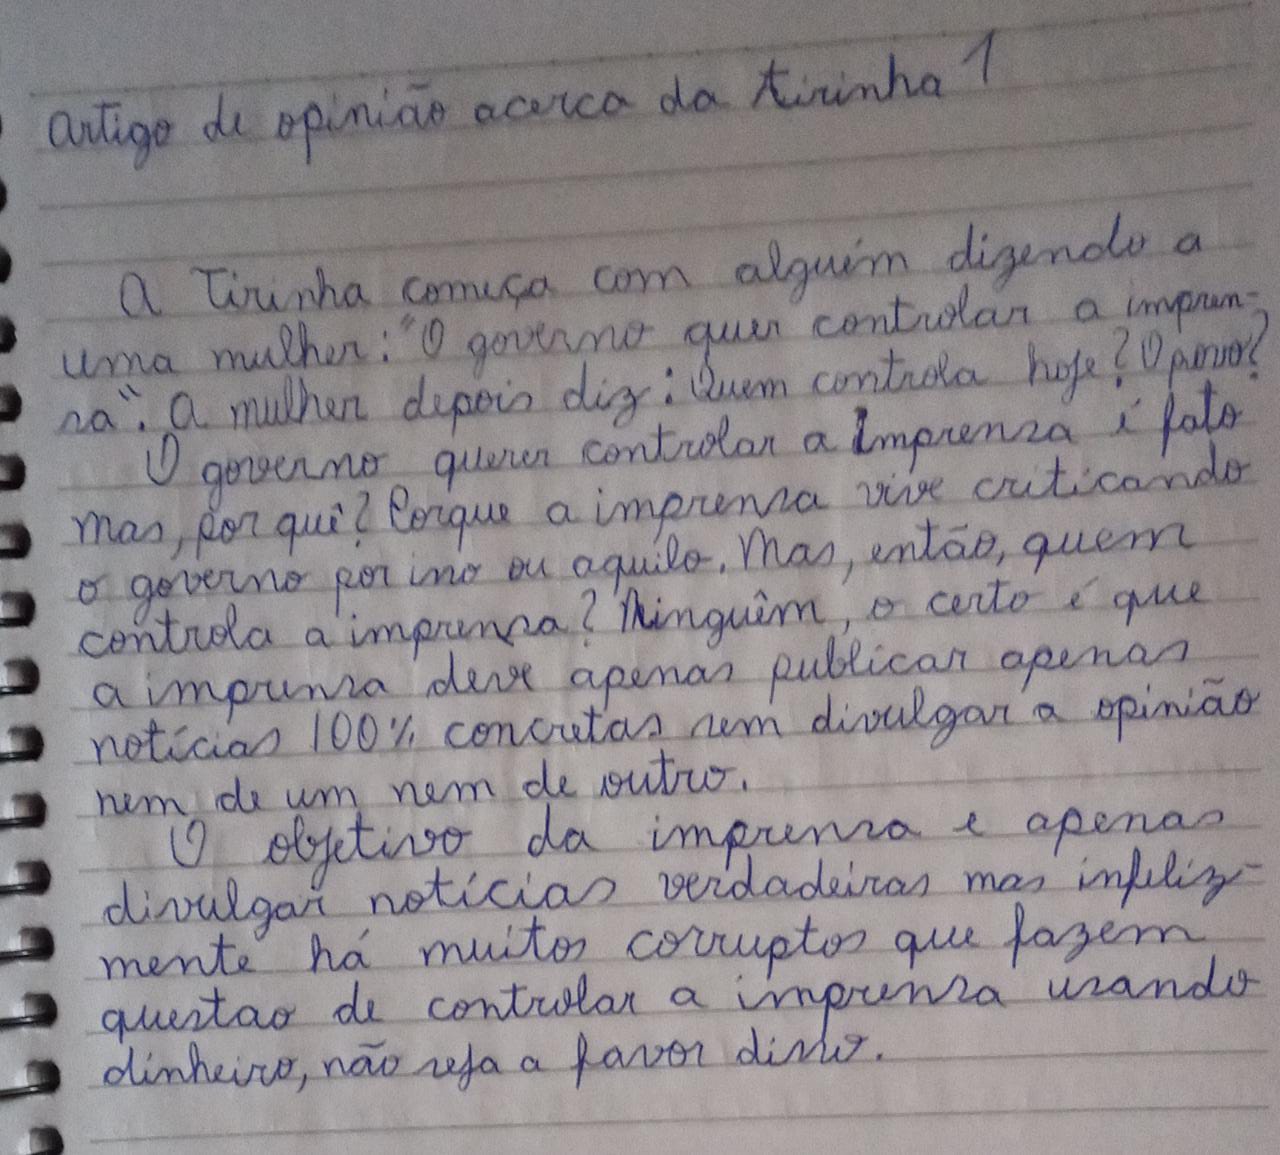 artigo de opinião acerca da tirinha 1
A Tirinha começa com alguém dizendo a
uma mulher: "O governo quer controlar a impren-
sa". A mulher depois diz: Quem controla hoje? O povo?
O governo querer controlar a Imprensa é fato
mas, por quê? Porque a imprensa vive criticando
o governo por isso ou aquilo. Mas, então, quem
controla a imprensa? Ninguém, o certo é que
a imprensa deve apenas publicar apenas
notícias 100% concretas sem divulgar a opinião
nem de um nem de outro.
O objetivo da imprensa e apenas
divulgar notícias verdadeiras mas infeliz-
mente há muitos corruptos que fazem
questao de controlar a imprensa usando
dinheiro, não seja a favor disso.